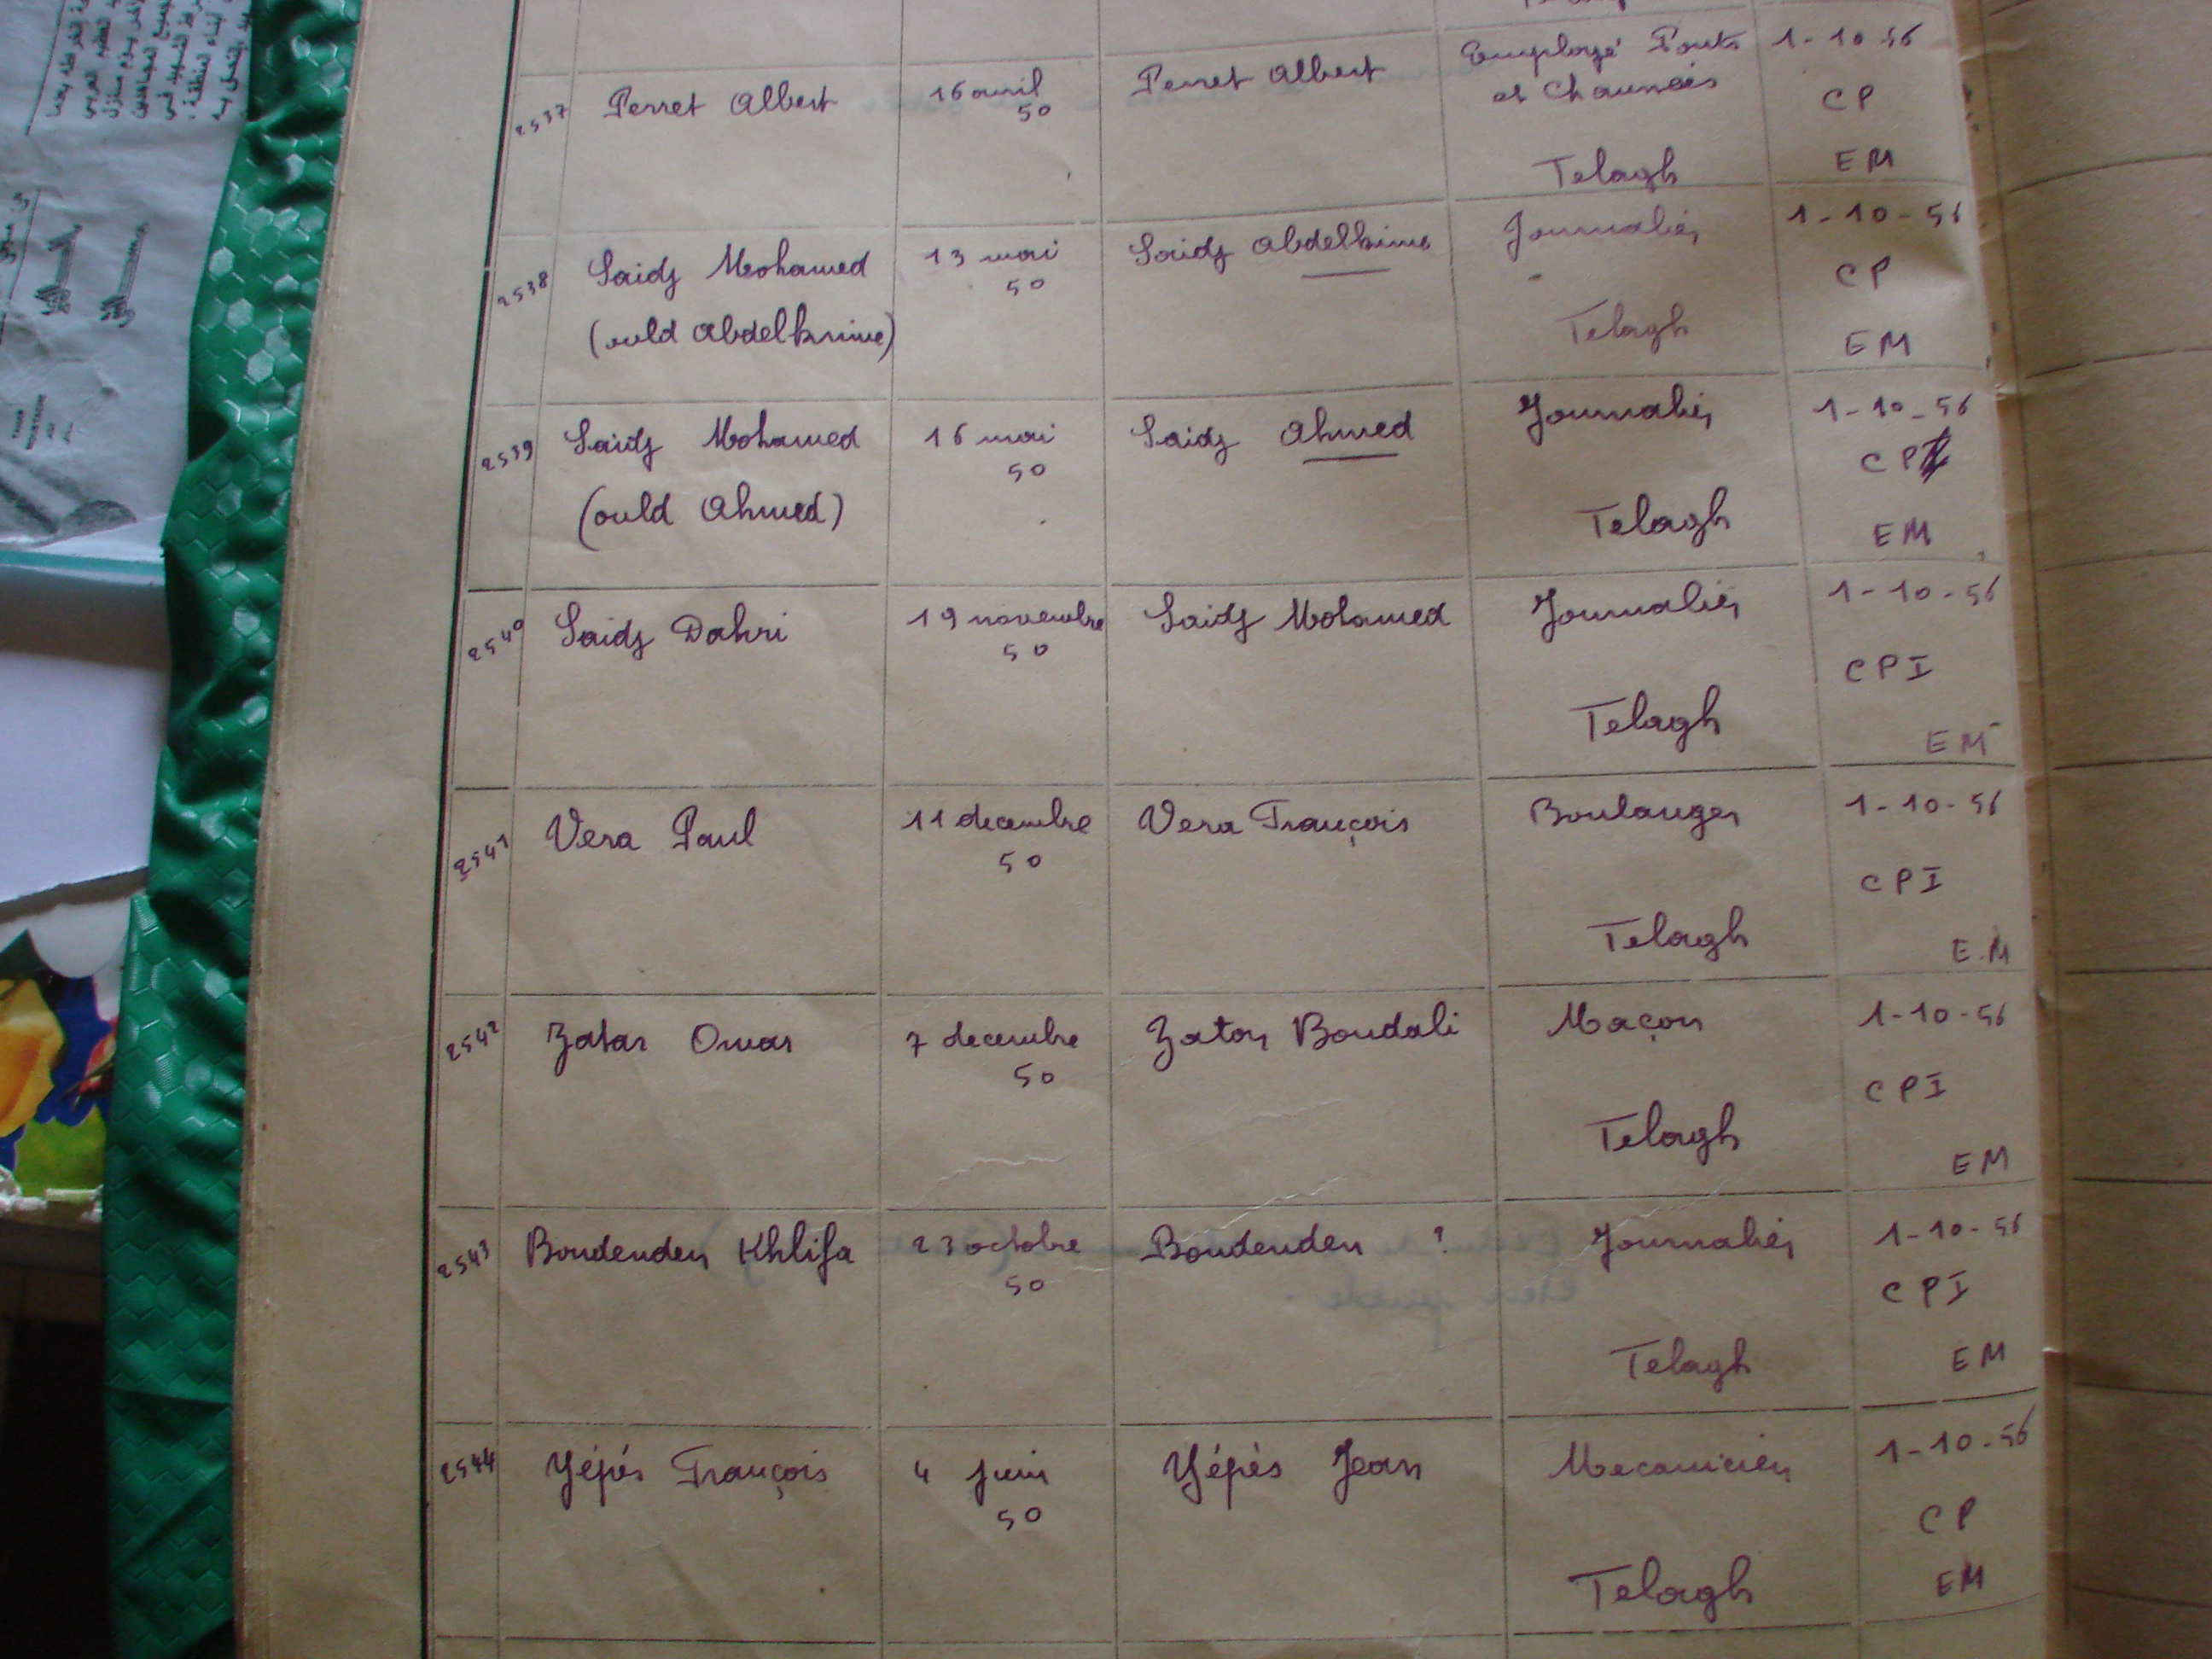 2537 Perret Albert 16 avril 50 Perret Albert Employé Ponts et Chaussées Telagh 1-10-56 CP EM
2538 Saidj Mohamed (ould Abdelkrime) 13 mai 50 Saidj Abdelkrime Journalier Telagh 1-10-56 CP EM
2539 Saidj Mohamed (ould Ahmed) 16 mai 50 Saidj Ahmed Journalier Telagh 1-10-56 CP EM
2540 Saidj Dahri 19 novembre 50 Saidj Mohamed Journalier Telagh 1-10-56 CPI EM
2541 Vera Paul 11 decembre 50 Vera François Boulanger Telagh 1-10-56 CPI E.M
2542 Zatar Omar 7 decembre 50 Zatar Boudali Maçon Telagh 1-10-56 CPI EM
2543 Boudenden Khlifa 23 octobre 50 Boudenden ? Journalier Telagh 1-10-56 CPI EM
2544 Yépès François 4 juin 50 Yépès Jean Mecanicien Telagh 1-10-56 CP EM